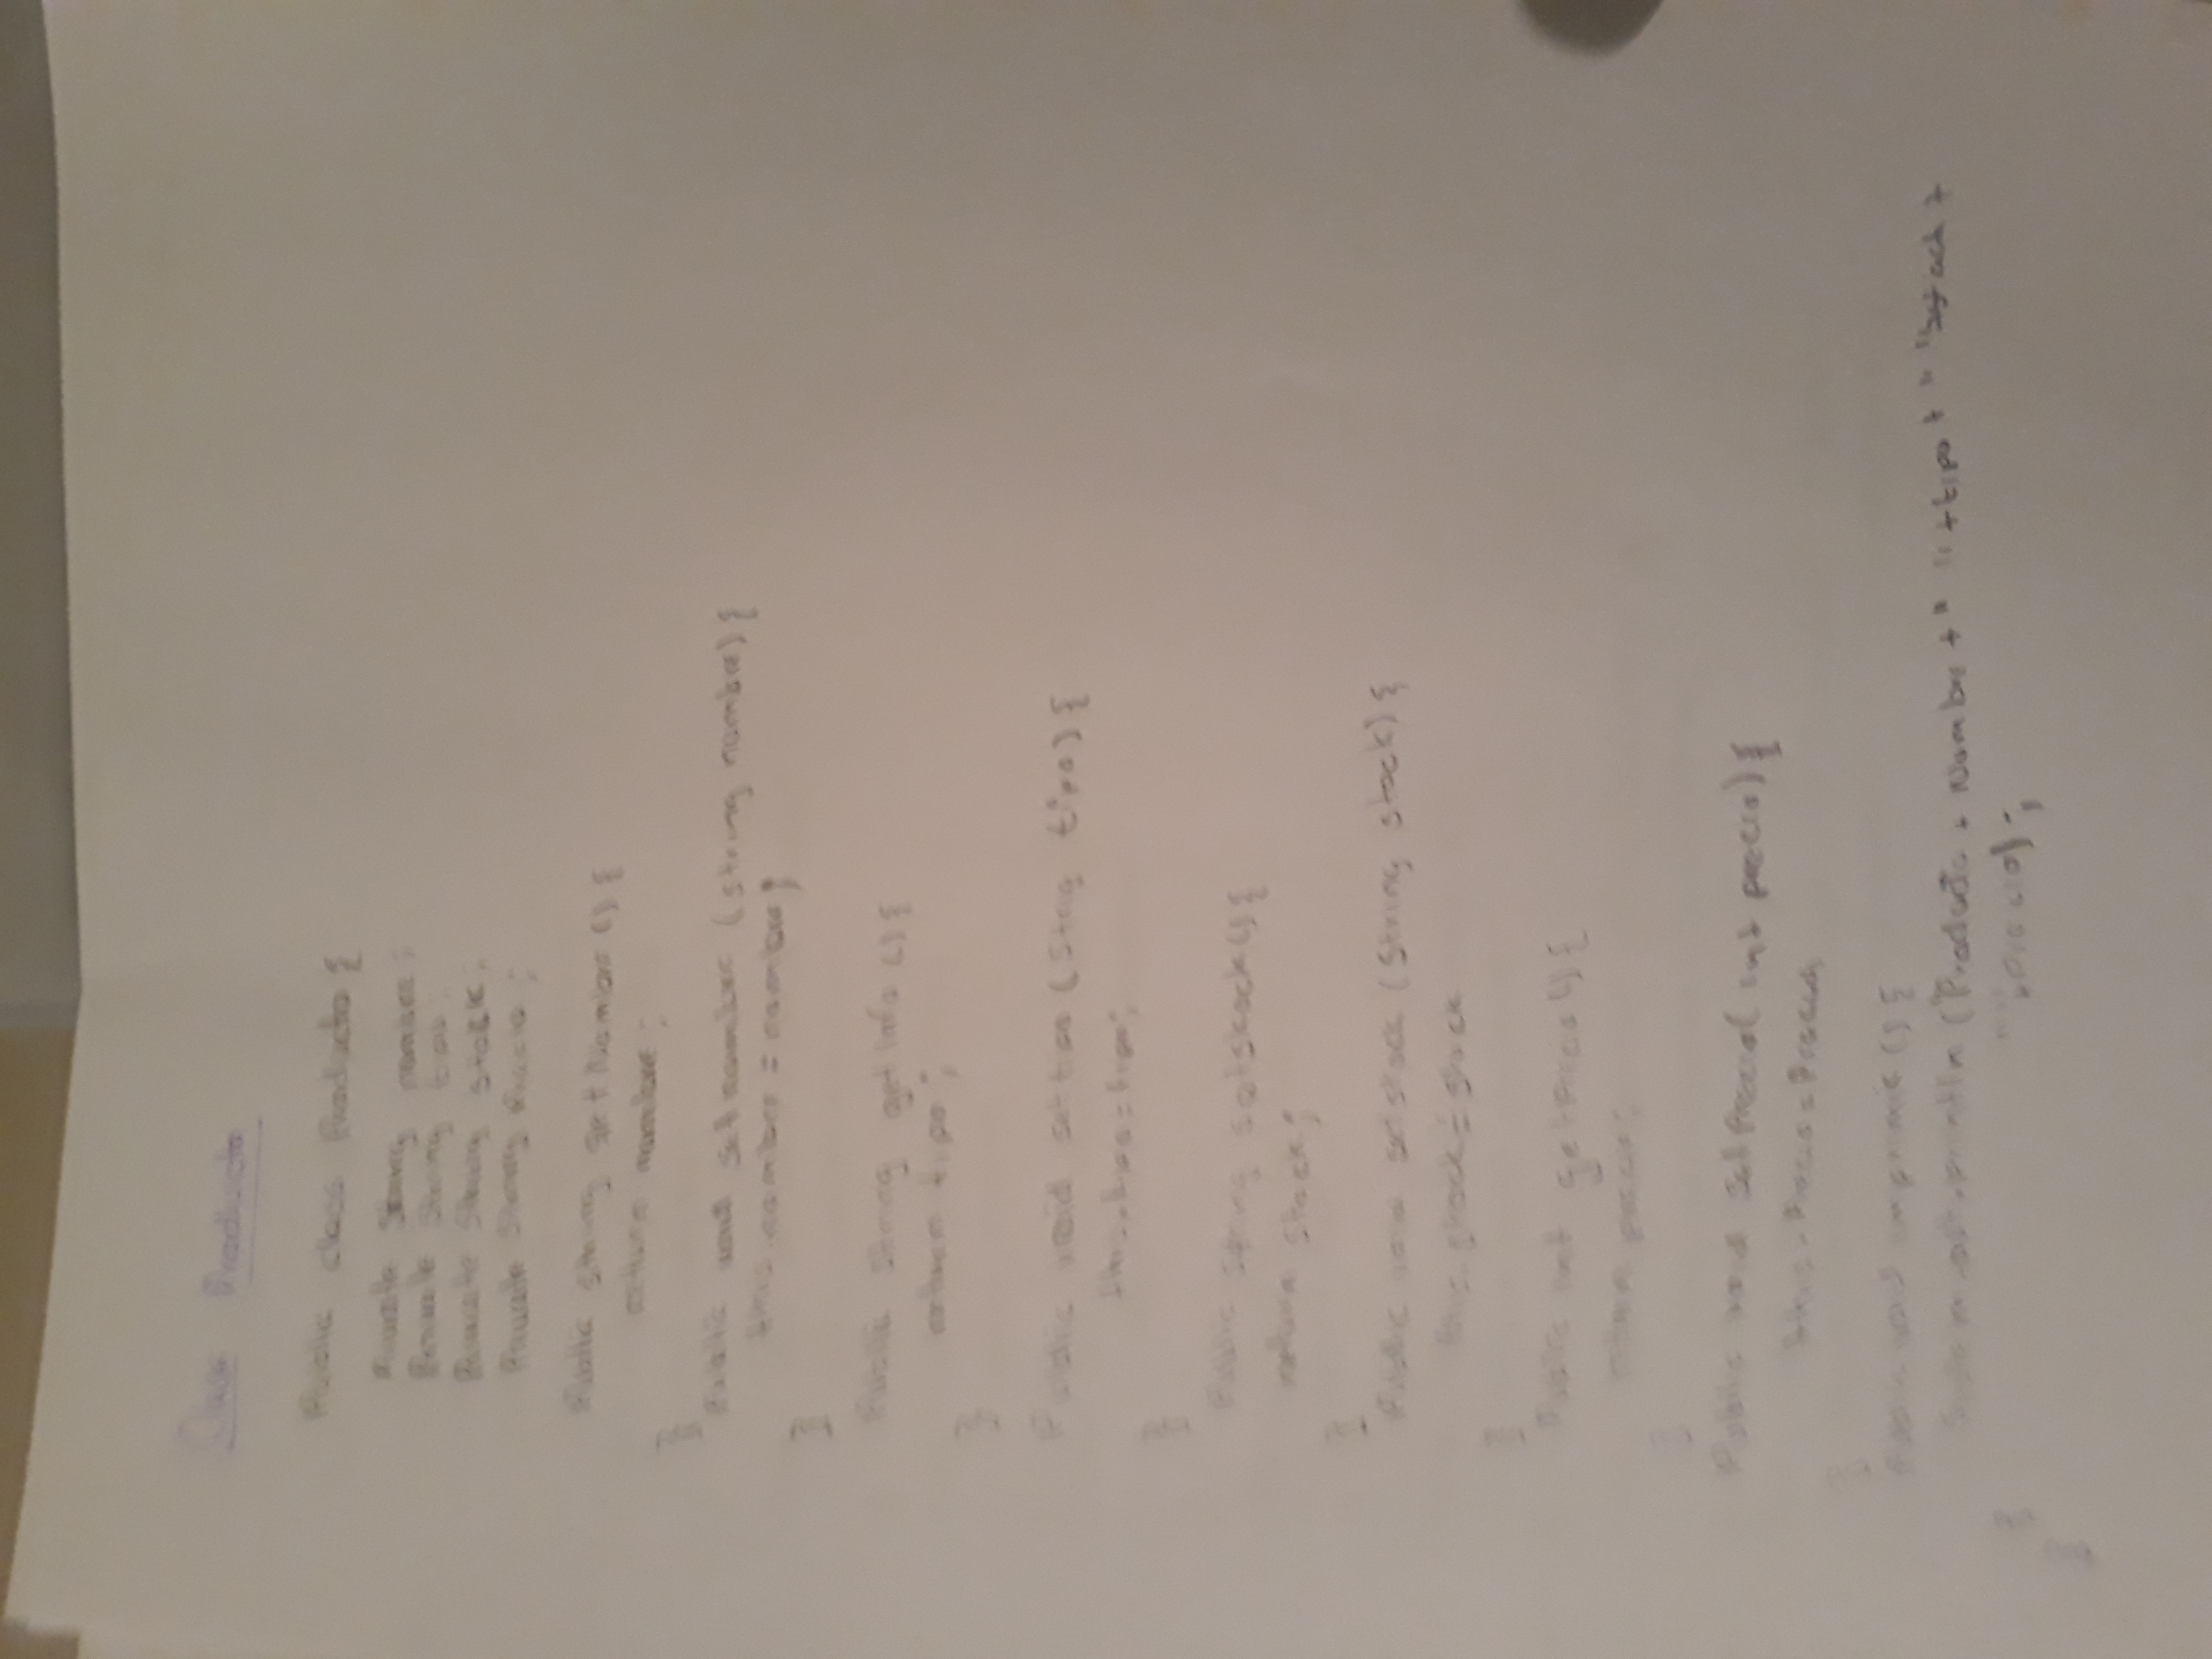 Clase Producto
Public class Producto {
Private String nombre;
Private String tipo;
Private String stock;
Private String Precio;
Public String getNombre () {
return nombre;
}
Public void setnombre (String nombre) {
this.nombre = nombre;
}
Public String getInfo () {
return tipo;
}
Public void settipo (Strig tipo) {
this.tipo = tipo;
}
Public String getstock () {
return stock;
}
Public void setstock (String stock) {
this.stock = stock
}
Public int getPrecio () {
return precio;
}
Public void SetPrecio( int precio) {
this.Precio = Precio;
}
Public void imprimir () {
System.out.println ("Producto + Nombre + " " + tipo + " " stock +
+Precio);
}
}